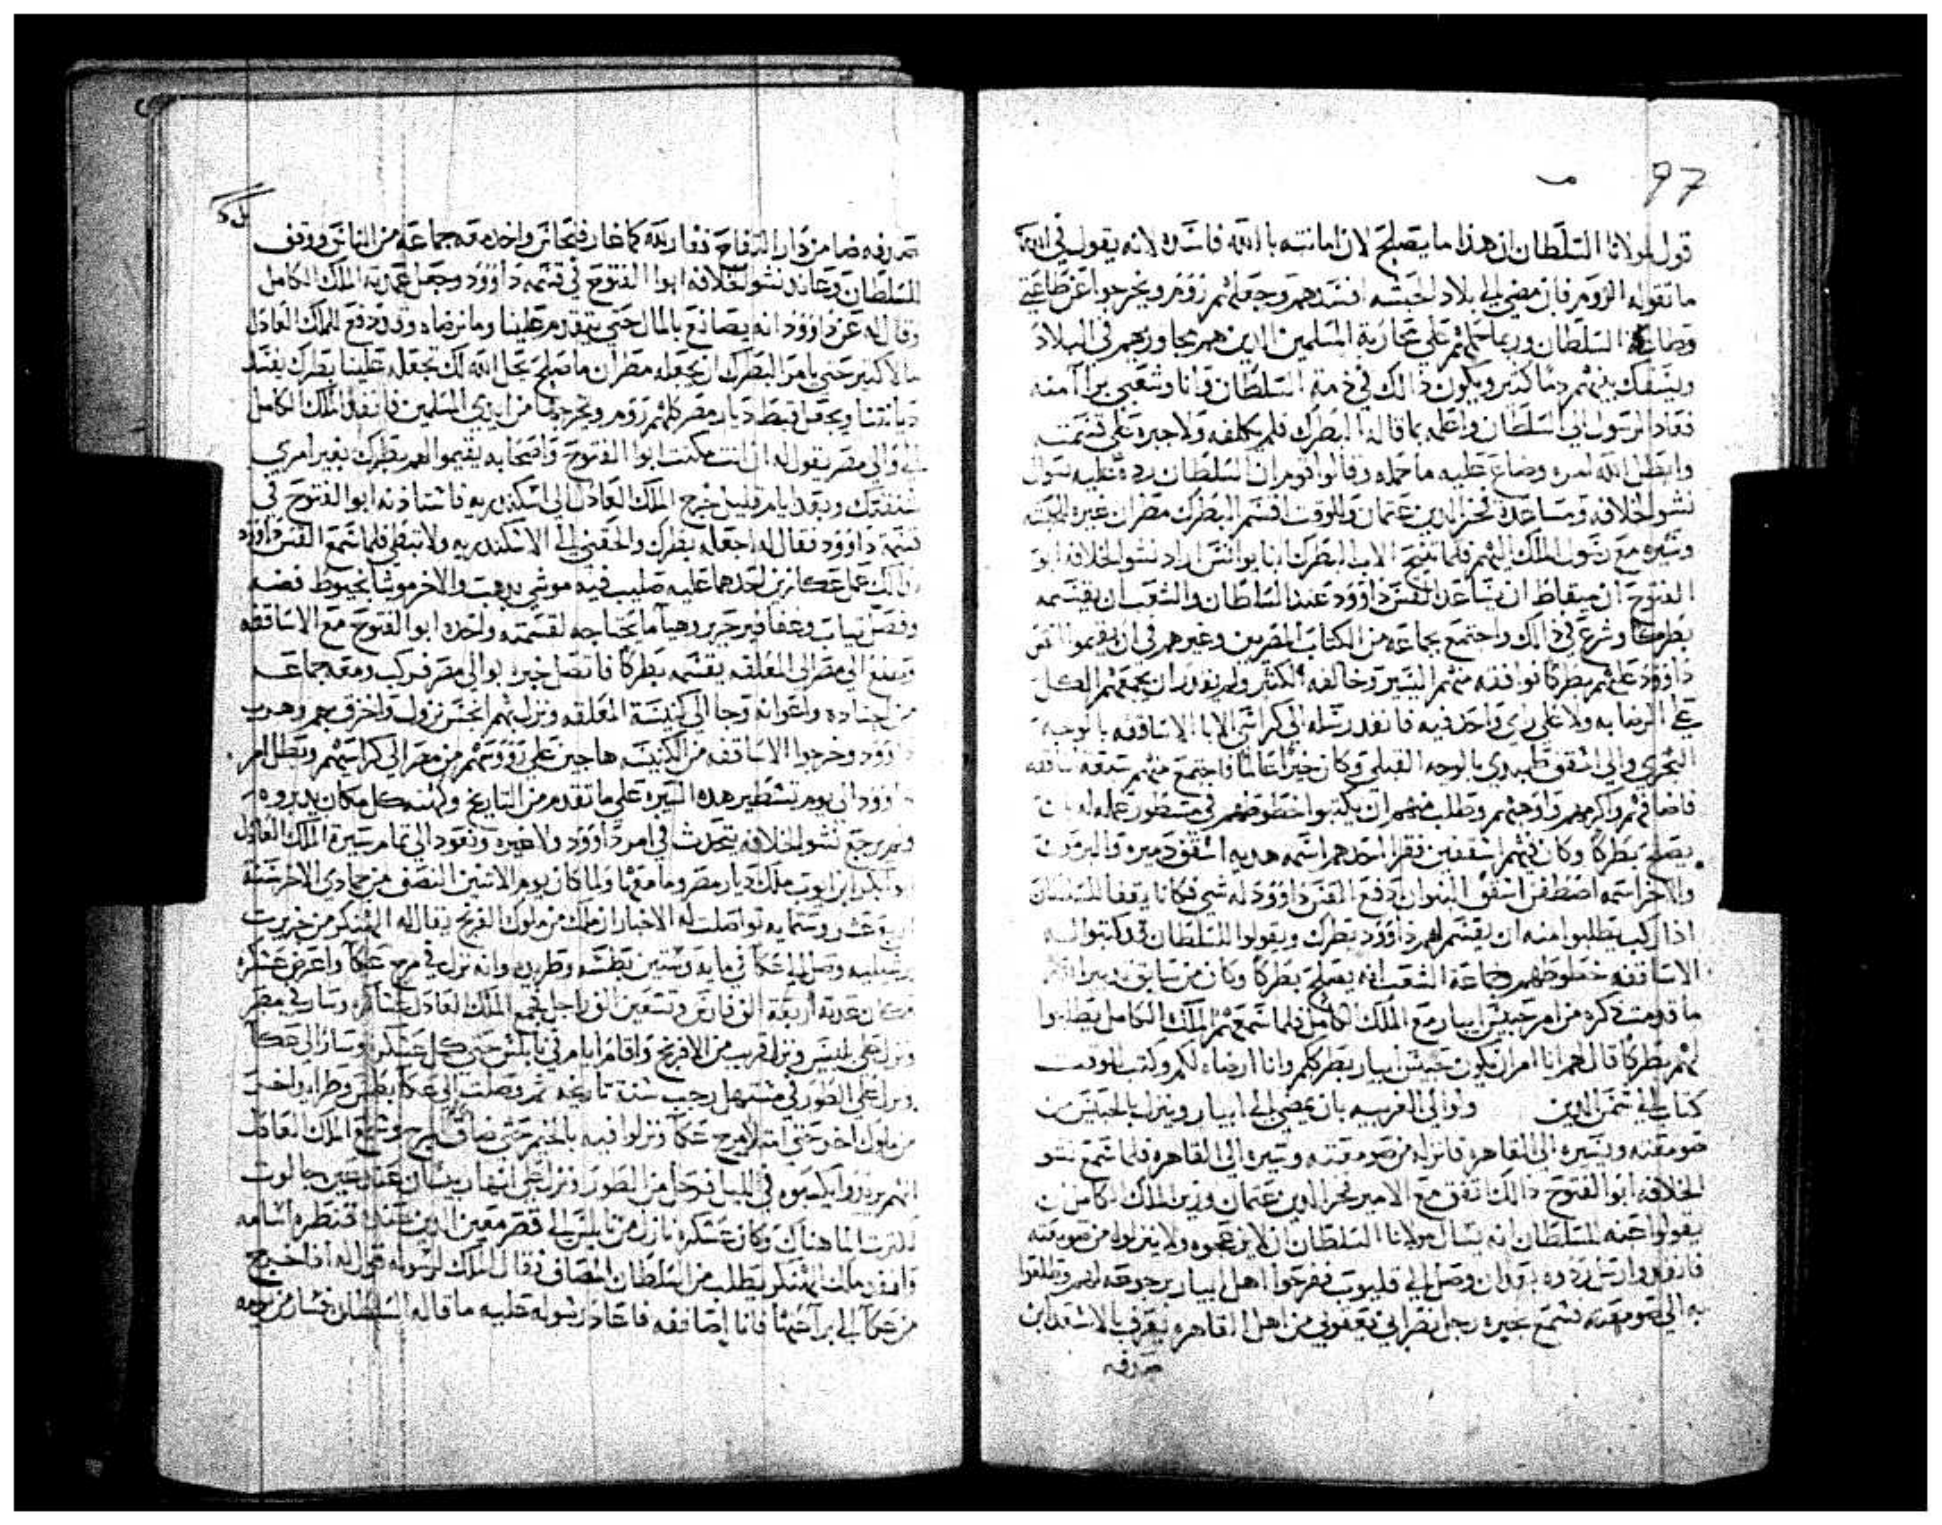 97
قول لمولانا السلطان ان هذا ما يصلح لان امانته بالله فاسده لانه يقول في الله
ما تقوله الروم فان مضي الي بلاد الحبشه افسدهم وجعلهم روم ويخرجوا عن طاعتي
وطاعة السلطان وربما حملهم علي محاربة المسلمين الدين هم مجاورهم في البلاد
وينسفك بينهم دما كتير ويكون دالك في دمة السلطان وانا وشعبي برا آ منه
فعاد الرسول الي السلطان واعلمه بما قاله البطرك فلم يكلفه ولا جبره علي قسمته
وابطل الله امره وضاع عليه ما حمله وقالوا قوم ان السلطان رده عليه بسوال
نشو الخلافه ومساعدة فخر الدين عتمان وللوقت اقسم البطرك مطران غيره للحبشه
وسيره مع رسول الملك اليهم فلما تنيح الاب البطرك انبا يوانس اراد نشو الخلافه ابو
الفتوح ابن ميقاط ان يساعد القس داوود عند السلطان والشعب ان يقسمه
بطركا وشرع في دالك واجتمع بجماعه من الكتاب المصريين وغيرهم في ان يقيموا القس
داوود عليهم بطركا فوافقه منهم اليسير وخالفه الكتير ولم يقدر ان يجمعهم الكل
علي الرضا به ولا علي راي واحد فيه فانفد رسله الي كراسي الابا الاساقفه بالوجه
البحري والي اسقف طنبدي بالوجه القبلي وكان خيرا عالما فاجتمع منهم ستة اساقفه
فاضافهم واكرمهم واوهبهم وطلب منهم ان يكتبوا خطوطهم في مسطور عمله له بان
يصلح بطركا وكان فيهم اسقفين فقرا احدهم اسمه هديه اسقف دميره والبرمون
والاخر اسمه اصطفن اسقف البنوان دفع القس داوود له شي فكانا يقفا للسلطان
اذا ركب يطلبوا منه ان يقسم لهم داوود بطرك ويقولوا للسلطان قد كتبوا له
الاساقفه خطوطهم وجماعة الشعب انه يصلح بطركا وكان من سابق
ما قدمت دكره من امر حبيس ابيار مع الملك الكامل فلما سمعهم الملك الكامل يطلبوا
لهم بطركا قال لهم انا امر ان يكون حبيس ابيار بطرككم وانا ارضاه لكم وكتب للوقت
كتاب الي شمس الدين والي الغربيه بان يمضي الي ابيار وينزل بالحبيس من
صومعته ويسيره الي القاهره فانزله من صومعته وسيره الي القاهره فلما سمع نشو
الخلافه ابو الفتوح دالك اتفق مع الامير فخر الدين عتمان وزير الملك الكامل ان
يقولوا عنه للسلطان انه يسال مولانا السلطان ان لا يزعجوه ولا ينزلوه من صومعته
وصل الي قليوب ففرحوا اهل ابيار برجوعه لهم وطلعوا
به الي صومعته فسمع بخبره رجل نصراني يعقوبي من اهل القاهره يعرف بالاسعد ابن
صدقه
صدقه ضامن دار التفاح فغار لله كما غار فنحاس واخد معه جماعه من الناس ووقف
للسلطان وعاند نشو الخلافه ابوا الفتوح في قسمة داوود وجعل عمدته الملك الكامل
وقال له عن داوود انه يصانع بالمال حتي يتقدم علينا وما نرضاه وقد دفع للملك العادل
مالا كتير حتي يامر البطرك ان يجعله مطران ما صلح يحل الله لك تجعله علينا بطرك يفسد
ديانتنا ويجعل قبط ديار مصر كلهم روم ونخرجها من ايدي المسلمين فانفد الملك الكامل
الي والي مصر يقول له ان انت مكنت ابوا الفتوح واصحابه يقيموا لهم بطرك بغير امري
شنقتك وبعد ايام قليل خرج الملك العادل الي اسكندريه فاستادنه ابو الفتوح في
قسمة داوود فقال له اجعله بطرك والحقني الي الاسكندريه ولا تبطي فلما سمع القس داوود
دالك عمل عكازين احدهما عليه صليب فيه موشي بدهب والاخر موشا بخيوط فضه
وفصل تياب وعفافير حرير وهيا ما يحتاجه لقسمته واخده ابو الفتوح مع الاساقفه
وطلع الي مصر الي المعلقه يقسمه بطركا فاتصل خبره بوالي مصر فركب ومعه جماعه
من اجناده واعوانه وجا الي كنيسة المعلقه ونزل بهم انحس نزول واخرق بهم وهرب
داوود وخرجوا الاساقفه من الكنيسه هاجين علي رووسهم من مصر الي كراسيهم وبطل امر
داوود الي يوم تسطير هده السيره علي ما تقدم من التاريخ وكهنه كل مكان يدبروه
ولم يرجع نشو الخلافه يتحدث في امر داوود ولا غيره ونعود الي تمام سيرة الملك العادل
ابو بكر ابن ايوب ملك ديار مصر وما معها ولما كان يوم الاتنين النصف من جمادي الاخر سنة
اربع عشر وستمايه تواصلت له الاخبار ان ملك من ملوك الفرنج يقال له الهنكر من جزيرت
وصل الي عكا في مايه وستين بطشه وطريده وانه نزل في مرج عكا واعرض عسكره
فكان عدته اربعة الف فارس وتسعين الف راجل فجمع الملك العادل عساكره وسار في مصر
ونزل علي بلبيس ونزل قريب من الافرنج واقام ايام في نابلس حتي كمل عسكره وسار الي عكا
ونزل علي الطور في مستهل رجب سنة تاريخه ثم وصلت الي عكا بطش وطرايد واخد
من ملوك اخر حتي امتلا مرج عكا ونزلوا فيه بالخيم حتي ضاق المرج وسمع الملك العادل
انهم يريدوا يكبسوه في الليل فرحل من الطور ونزل علي انهار بيسان عند عين جالوت
لكترت الما هناك وكان عسكره نازل من نابلس الي قصر معين الدين عند قنطره اسامه
وانفد ملك الهنكر يطلب من السلطان المصاف فقال الملك لرسوله قول له ادا خرج
من عكا الي برا عنها فانا اصاففه فاعاد رسوله عليه ما قاله السلطان فسار من يومه